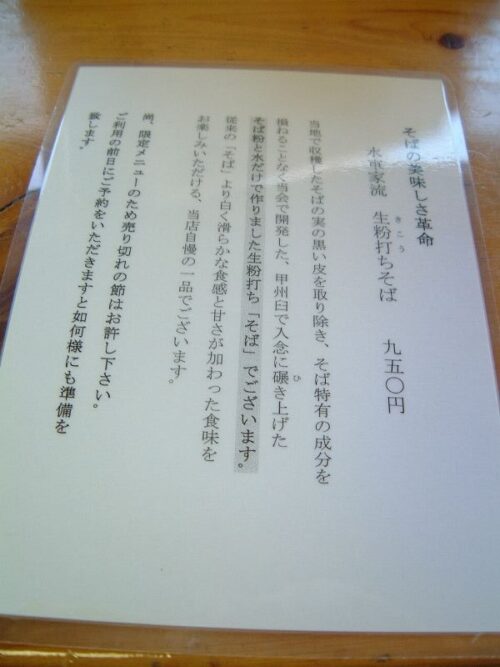 そばの美味しさ革命
水車家流 生粉打ちそば 九五〇円
きこう
当地で収穫したそばの実の黒い皮を取り除き、そば特有の成分を
損ねることなく当会で開発した、甲州臼で入念に碾き上げた
ひ
そば粉と水だけで作りました生粉打ち「そば」でございます。
従来の「そば」より白く滑らかな食感と甘さが加わった食味を
お楽しみいただける、当店自慢の一品でございます。
尚、限定メニューのため売り切れの節はお許し下さい。
ご利用の前日にご予約をいただきますと如何様にも準備を
致します。